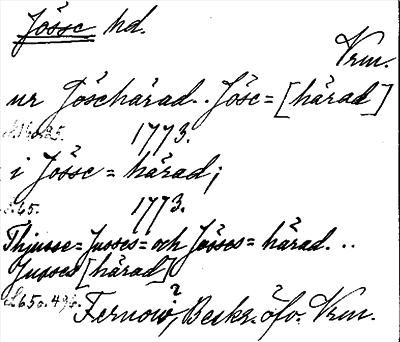 Jösse hd.
Vrm.
ur Jöschärad.. Jösc=[härad]
1773.
i Jösse=härad;
s. 65. 1773.
Thjusse=Jusses=och Jösses=härad...
Jusses [härad]
Fernow, Beskr. öfv. Vrm.